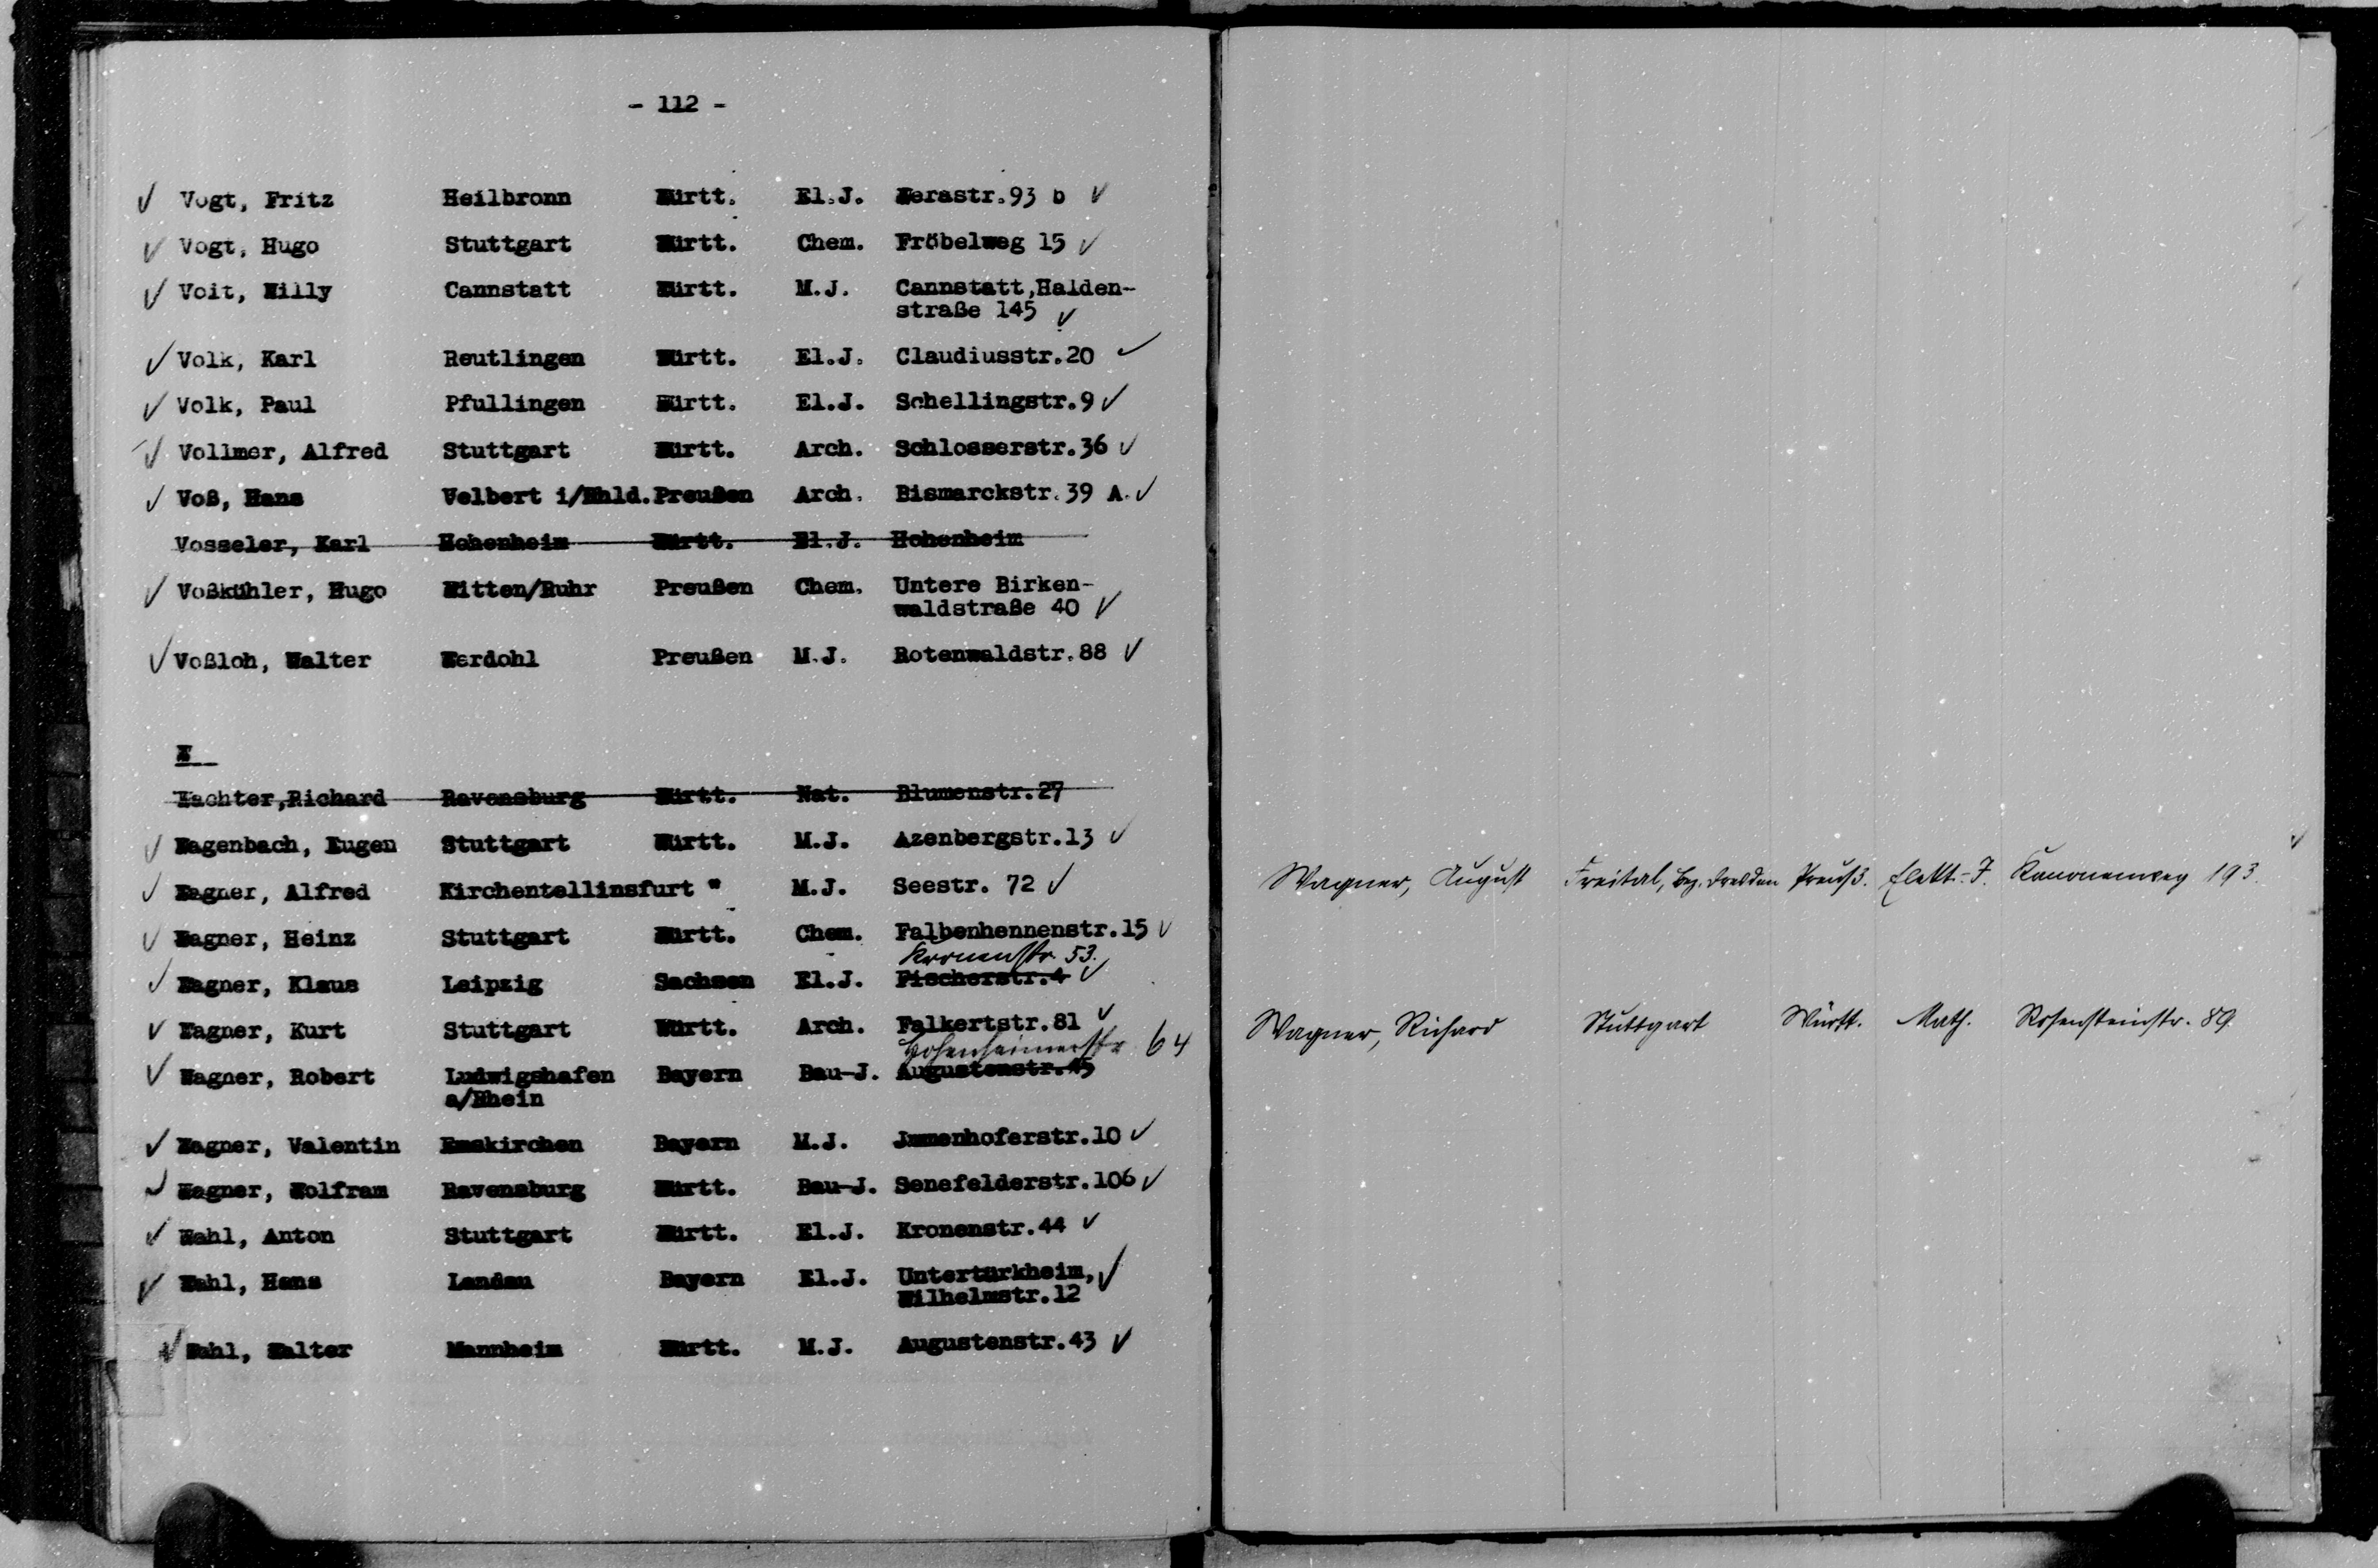 - 112 -
Vogt, Fritz Heilbronn Württ. El.J. Werastr.93 b
Vogt, Hugo Stuttgart Württ. Chem. Fröbelweg 15
Voit, Willy Cannstatt Württ. M.J. Cannstatt,Halden-
straße 145
Volk, Karl Reutlingen Württ. El.J. Claudiusstr.20
Volk, Paul Pfullingen Württ. El.J. Schellingstr.9
Vollmer, Alfred Stuttgart Württ. Arch. Schlosserstr.36
Voß, Hans Velbert i/Rhld. Preußen Arch. Bismarckstr.39 A.
Vosseler, Karl Hohenheim Württ. El.J. Hohenheim
Voßkühler, Hugo Witten/Ruhr Preußen Chem. Untere Birken-
waldstraße 40
Voßloh, Walter Werdohl Preußen M.J. Rotenwaldstr.88
W
Wachter,Richard Ravensburg Württ. Nat. Blumenstr.27
Wagenbach, Eugen Stuttgart Württ. M.J. Azenbergstr.13
Wagner, Alfred Kirchentellinsfurt " M.J. Seestr. 72
Wagner, Heinz Stuttgart Württ. Chem. Falbenhennenstr.15
Kronenstr. 53.
Wagner, Klaus Leipzig Sachsen El.J. Fischerstr.4
Wagner, Kurt Stuttgart Württ. Arch. Falkertstr.81
Hohenheimerstr 64
Wagner, Robert Ludwigshafen Bayern Bau-J. Augustenstr.45
a/Rhein
Wagner, Valentin Emskirchen Bayern M.J. Jmmenhoferstr.10
Wagner, Wolfram Ravensburg Württ. Bau-J. Senefelderstr.106
Wahl, Anton Stuttgart Württ. El.J. Kronenstr.44
Wahl, Hans Landau Bayern El.J. Untertürkheim,
Wilhelmstr.12
Wahl, Walter Mannheim Württ. M.J. Augustenstr.43
Wagner, August Freital, Bz. Dresden Preuß. Elekt.-J. Kanonenweg 193.
Wagner, Richard Stuttgart Württ. Math. Rosensteinstr. 89.